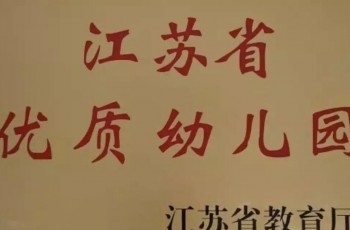 江苏省
优质幼儿园
江苏省教育厅